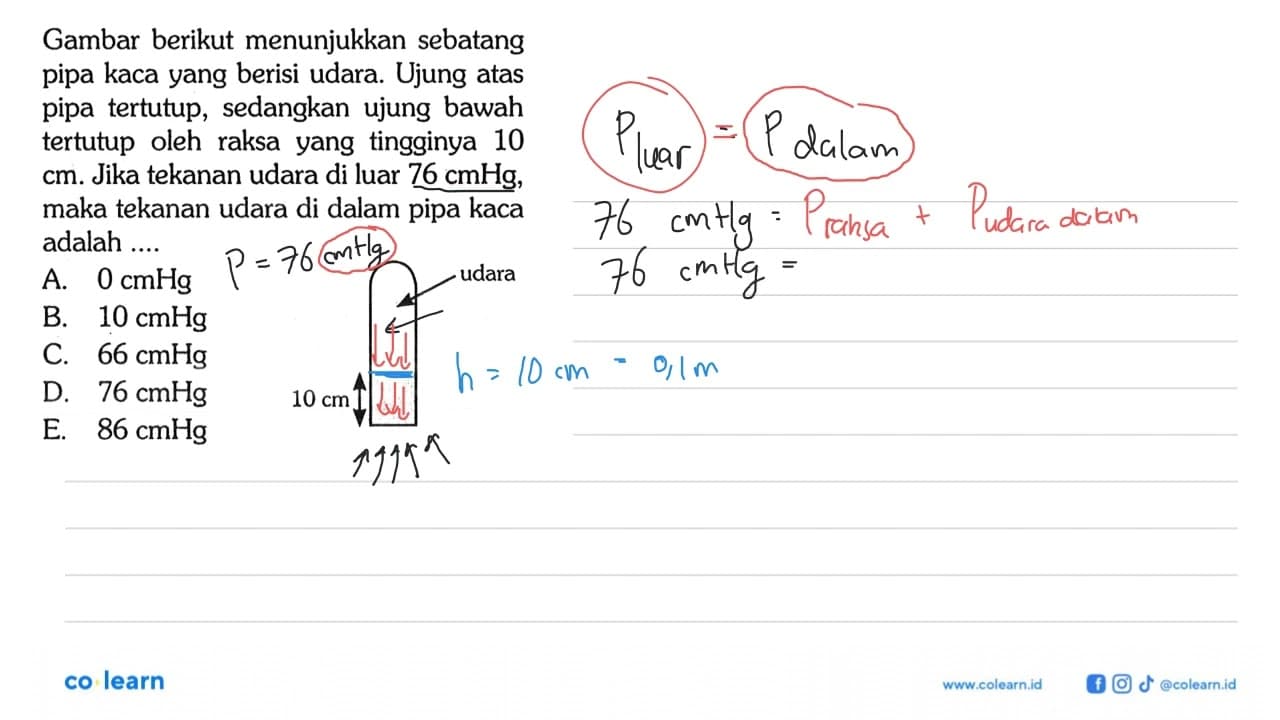 Gambar berikut menunjukkan sebatang
pipa kaca yang berisi udara. Ujung atas
pipa tertutup, sedangkan ujung bawah
tertutup oleh raksa yang tingginya 10
cm. Jika tekanan udara di luar 76 cmHg,
maka tekanan udara di dalam pipa kaca
adalah ....
A. 0 cmHg
B. 10 cmHg
C. 66 cmHg
D. 76 cmHg
E. 86 cmHg
P = 76 cmHg
udara
10 cm
h = 10 cm = 0,1 m
P luar = P dalam
76 cmHg = P raksa + P udara dalam
76 cmHg =
co learn
www.colearn.id
@colearn.id